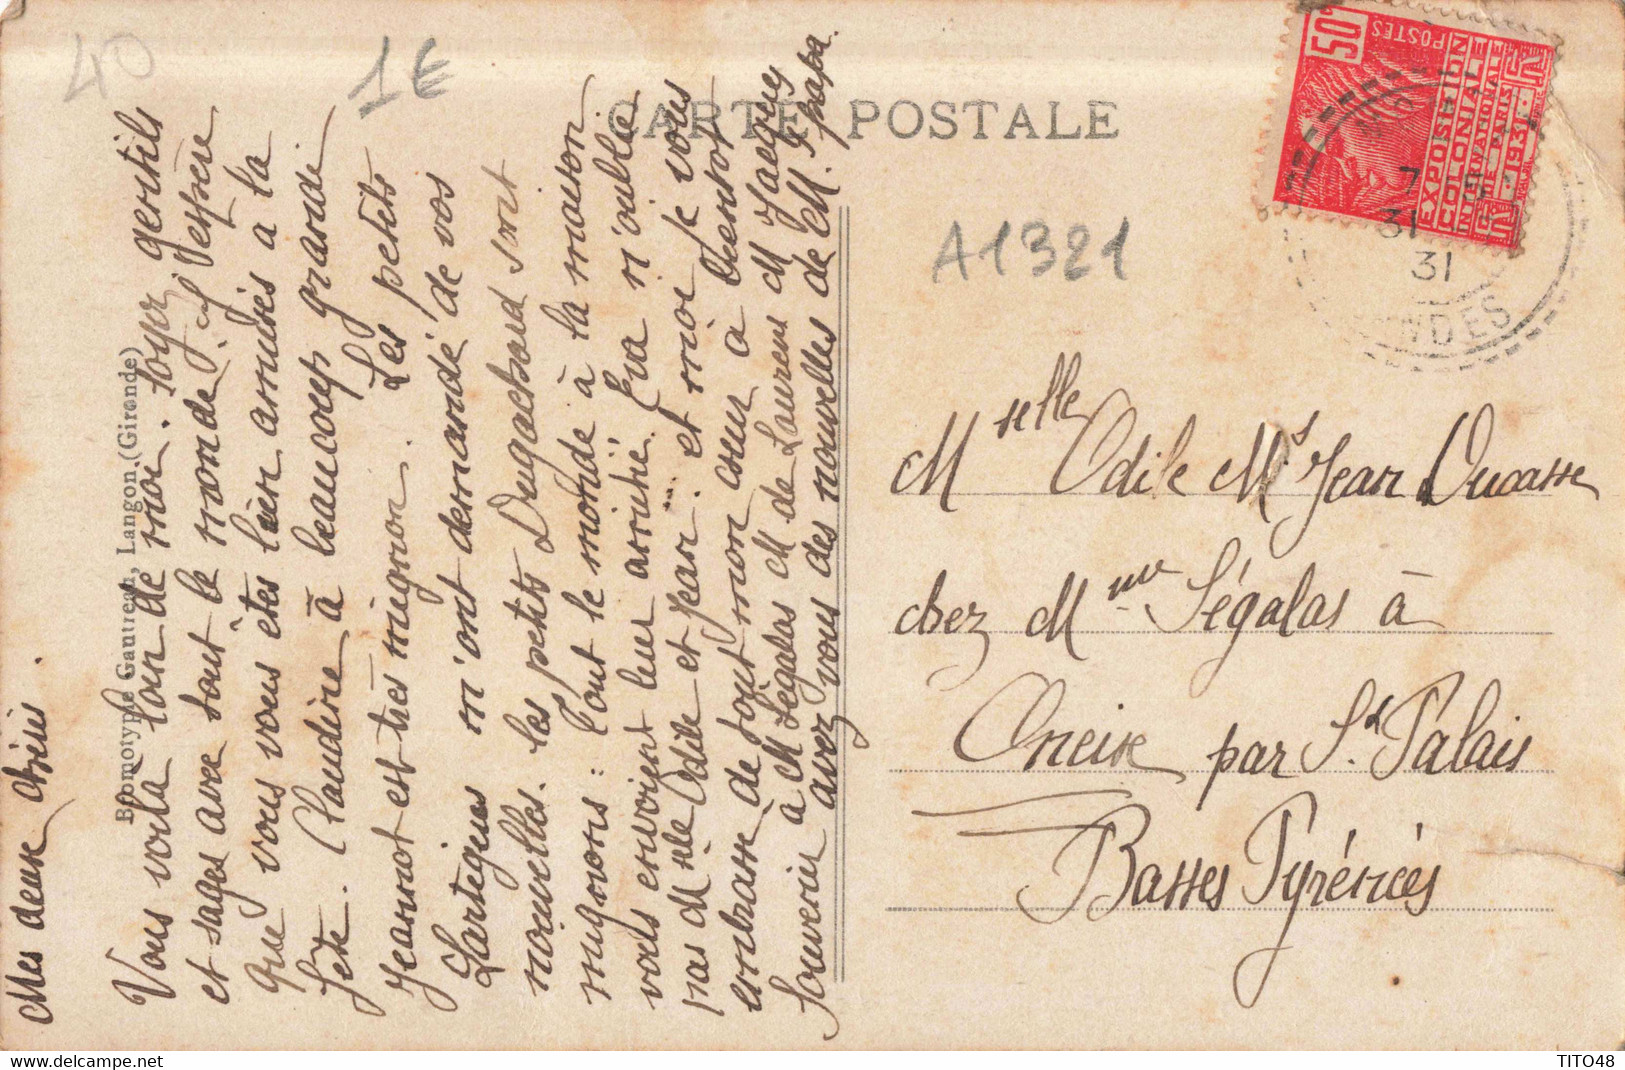 40
1€
CARTE POSTALE
A1321
50
POSTES
EXPOSITION
COLONIALE
INTERNATIONALE
DE PARIS
1931
7 5
31
31
Bromotypie Gautreau, Langon, (Gironde)
Mes deux chéris.
Vous voilà loin de moi. Soyez gentils
et sages avec tout le monde.
que vous vous êtes bien amusés à la
fête. Claudine à beaucoup grandi
Jeannot est très mignon. Les petits
Lartigues m'ont demandé de vos
nouvelles. les petits Dugachard sont
mignons: Tout le monde à la maison
vous envoient leur amitié. Eva n'oublie
pas Melle Odile et Jean. et moi je vous
embrasse de tout mon cœur à bientôt
Souvenir à M Ségalas M de Laurens M Jacques
avez vous des nouvelles de M. papa.
Mselle Odile Mr Jean Ducasse
chez Mme Ségalas à
Oneix par St Palais
Basses Pyrénées
TITO48